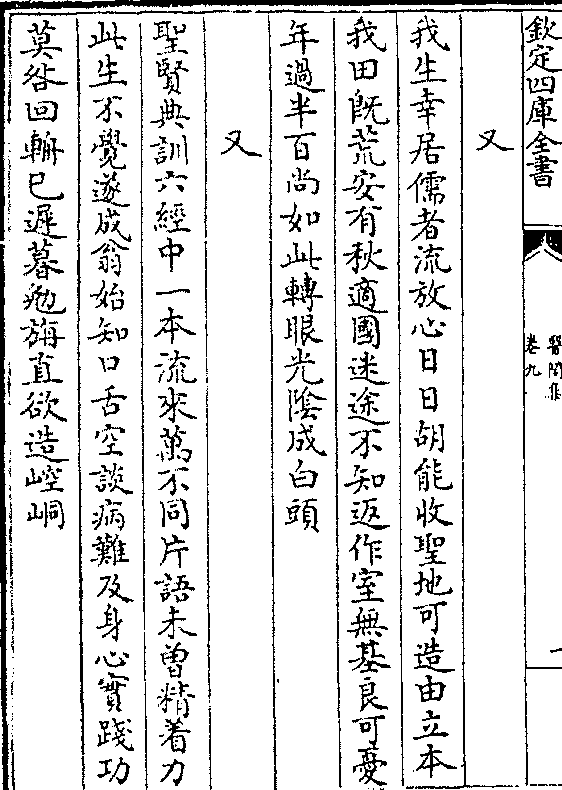 欽定四庫全書
醫閭集
卷九
一
又
我生幸居儒者流放心日日胡能收聖地可造由立本
我田既荒安有秋適國迷途不知返作室無基良可憂
年過半百尚如此轉眼光陰成白頭
又
聖賢典訓六經中一本流來萬不同片語未曽精着力
此生不覺遂成翁始知口舌空談病難及身心實踐功
莫咎回輈已遲暮勉旃直欲造崆峒